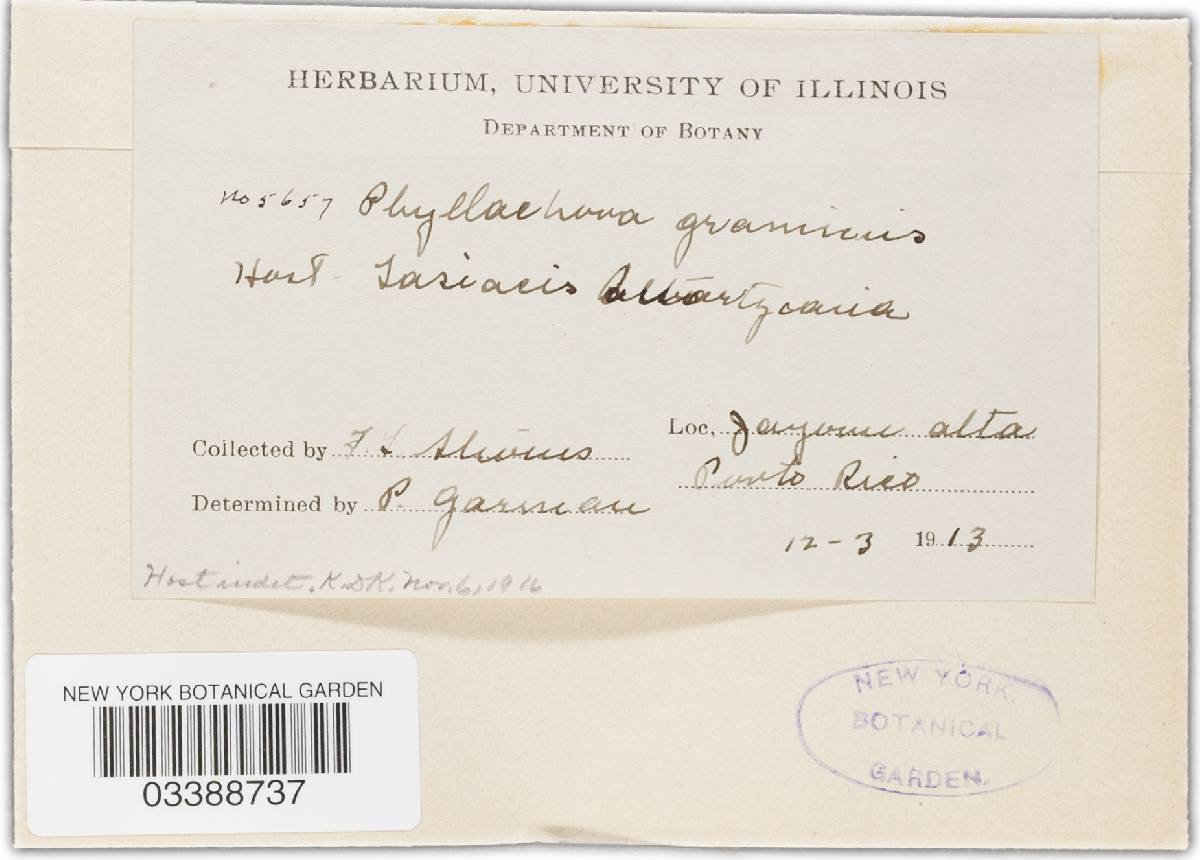 HERBARIUM, UNIVERSITY OF ILLINOIS
DEPARTMENT OF BOTANY
No 5657 Phyllachora graminis
Host Lasiacis Swartziana
Collected by F. L. Stevens
Loc, Jayome alta
Porto Rico
Determined by P. Garman
12-3 1913
Host indet. K.D.K. Nov. 6, 1916
NEW YORK BOTANICAL GARDEN
03388737
NEW YORK
BOTANICAL
GARDEN.